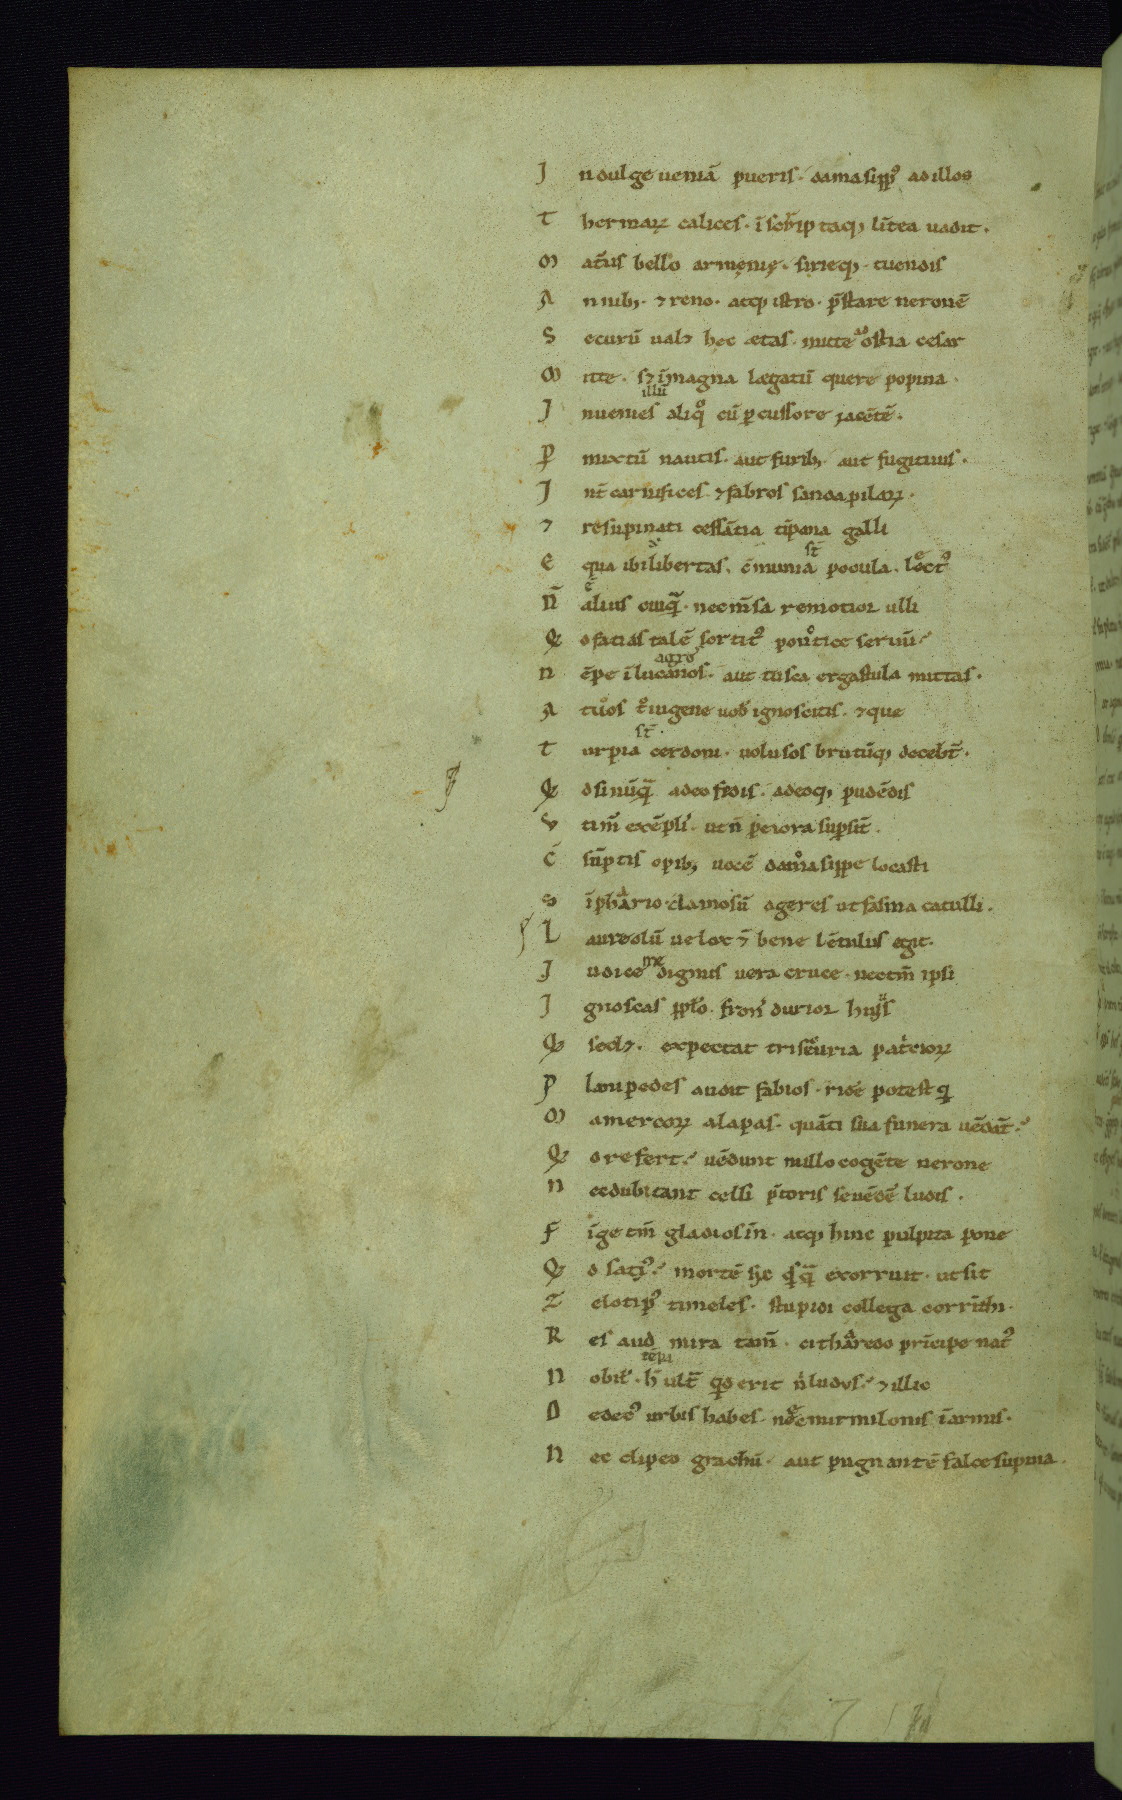 J ndulge ueniā pueris. damasipp᷒ ad illos
T hermarꝝ calices. īscͥptaqꝫ lītea uadit.
M atus bello armenię. sirieqꝫ tuendis
A mnibꝫ. ⁊ reno. atqꝫ istro. p̄stare neronē
S ecurū ualꝫ hec ætas. mitte ostia cesar
M itte. sꝫ ī magna lægatū quere popina.
illū
J nuenies aliqͦ cū ꝑcussore jacētē.
P mixtū nautis. aut furibꝫ. aut fugitiuis.
J nt̄ carnifices ⁊ fabros sandapilarꝝ.
⁊ resupinati cessātia tīpana galli
E qua ibi libertas, c̄munia pocula. lect᷒
st̄
N̄ alius cuiqᷓ. nec m̄sa remotior ulli
ē
Q d facias talē sortit᷒ pontice seruū
agro
N ēpe ī lucanos. aut tusca ergastula mittas.
A t uos t͛iugene uob̄ ignoscitis. ⁊ que
st̄
T urpia cerdoni. uolusos brutūqꝫ decebt̄.
Q d si nūqᷓ adeo fedis. adeoqꝫ pudēdis
V timͬ exēpli. ut n̄ peiora suꝑsīt.
C̄ sūptis opibꝫ uocē damasippe locasti
S ipario. clamosū ageres ut fasma catulli.
L aureolū uelox ⁊ bene lētulus egit.
J udice me dignus uera cruce. nec tm̄ ipsi
J gnoscas pplo. frons durior huj᷒
Q sedꝫ. expectat triscurria patͥciorꝝ
P lanipedes audit fabios. ridē potest qͥ
M amercorꝝ alapas. quāti sua funera uēdāt
Q d refert uēdunt nullo cogēte nerone
N ec dubitant celsi p̄toris uēdē ludis.
F īge tm̄ gladios īn. atqꝫ hinc pulpita pone
Q d satiꝰ mortē sic qͥsqᷓ exorruit. ut sit
Z elotip᷒ timeles. stupidi collega corīthi.
R es aud mira tam̄. citharedo prīcipe nat᷒
N obil᷒. h ultͣ qͥd erit nͥ ludus ⁊ illic
D edec᷒ urbis habes. nec mirmilonis ī armis.
N ec clipeo grachū. aut pugnantē falce supina.